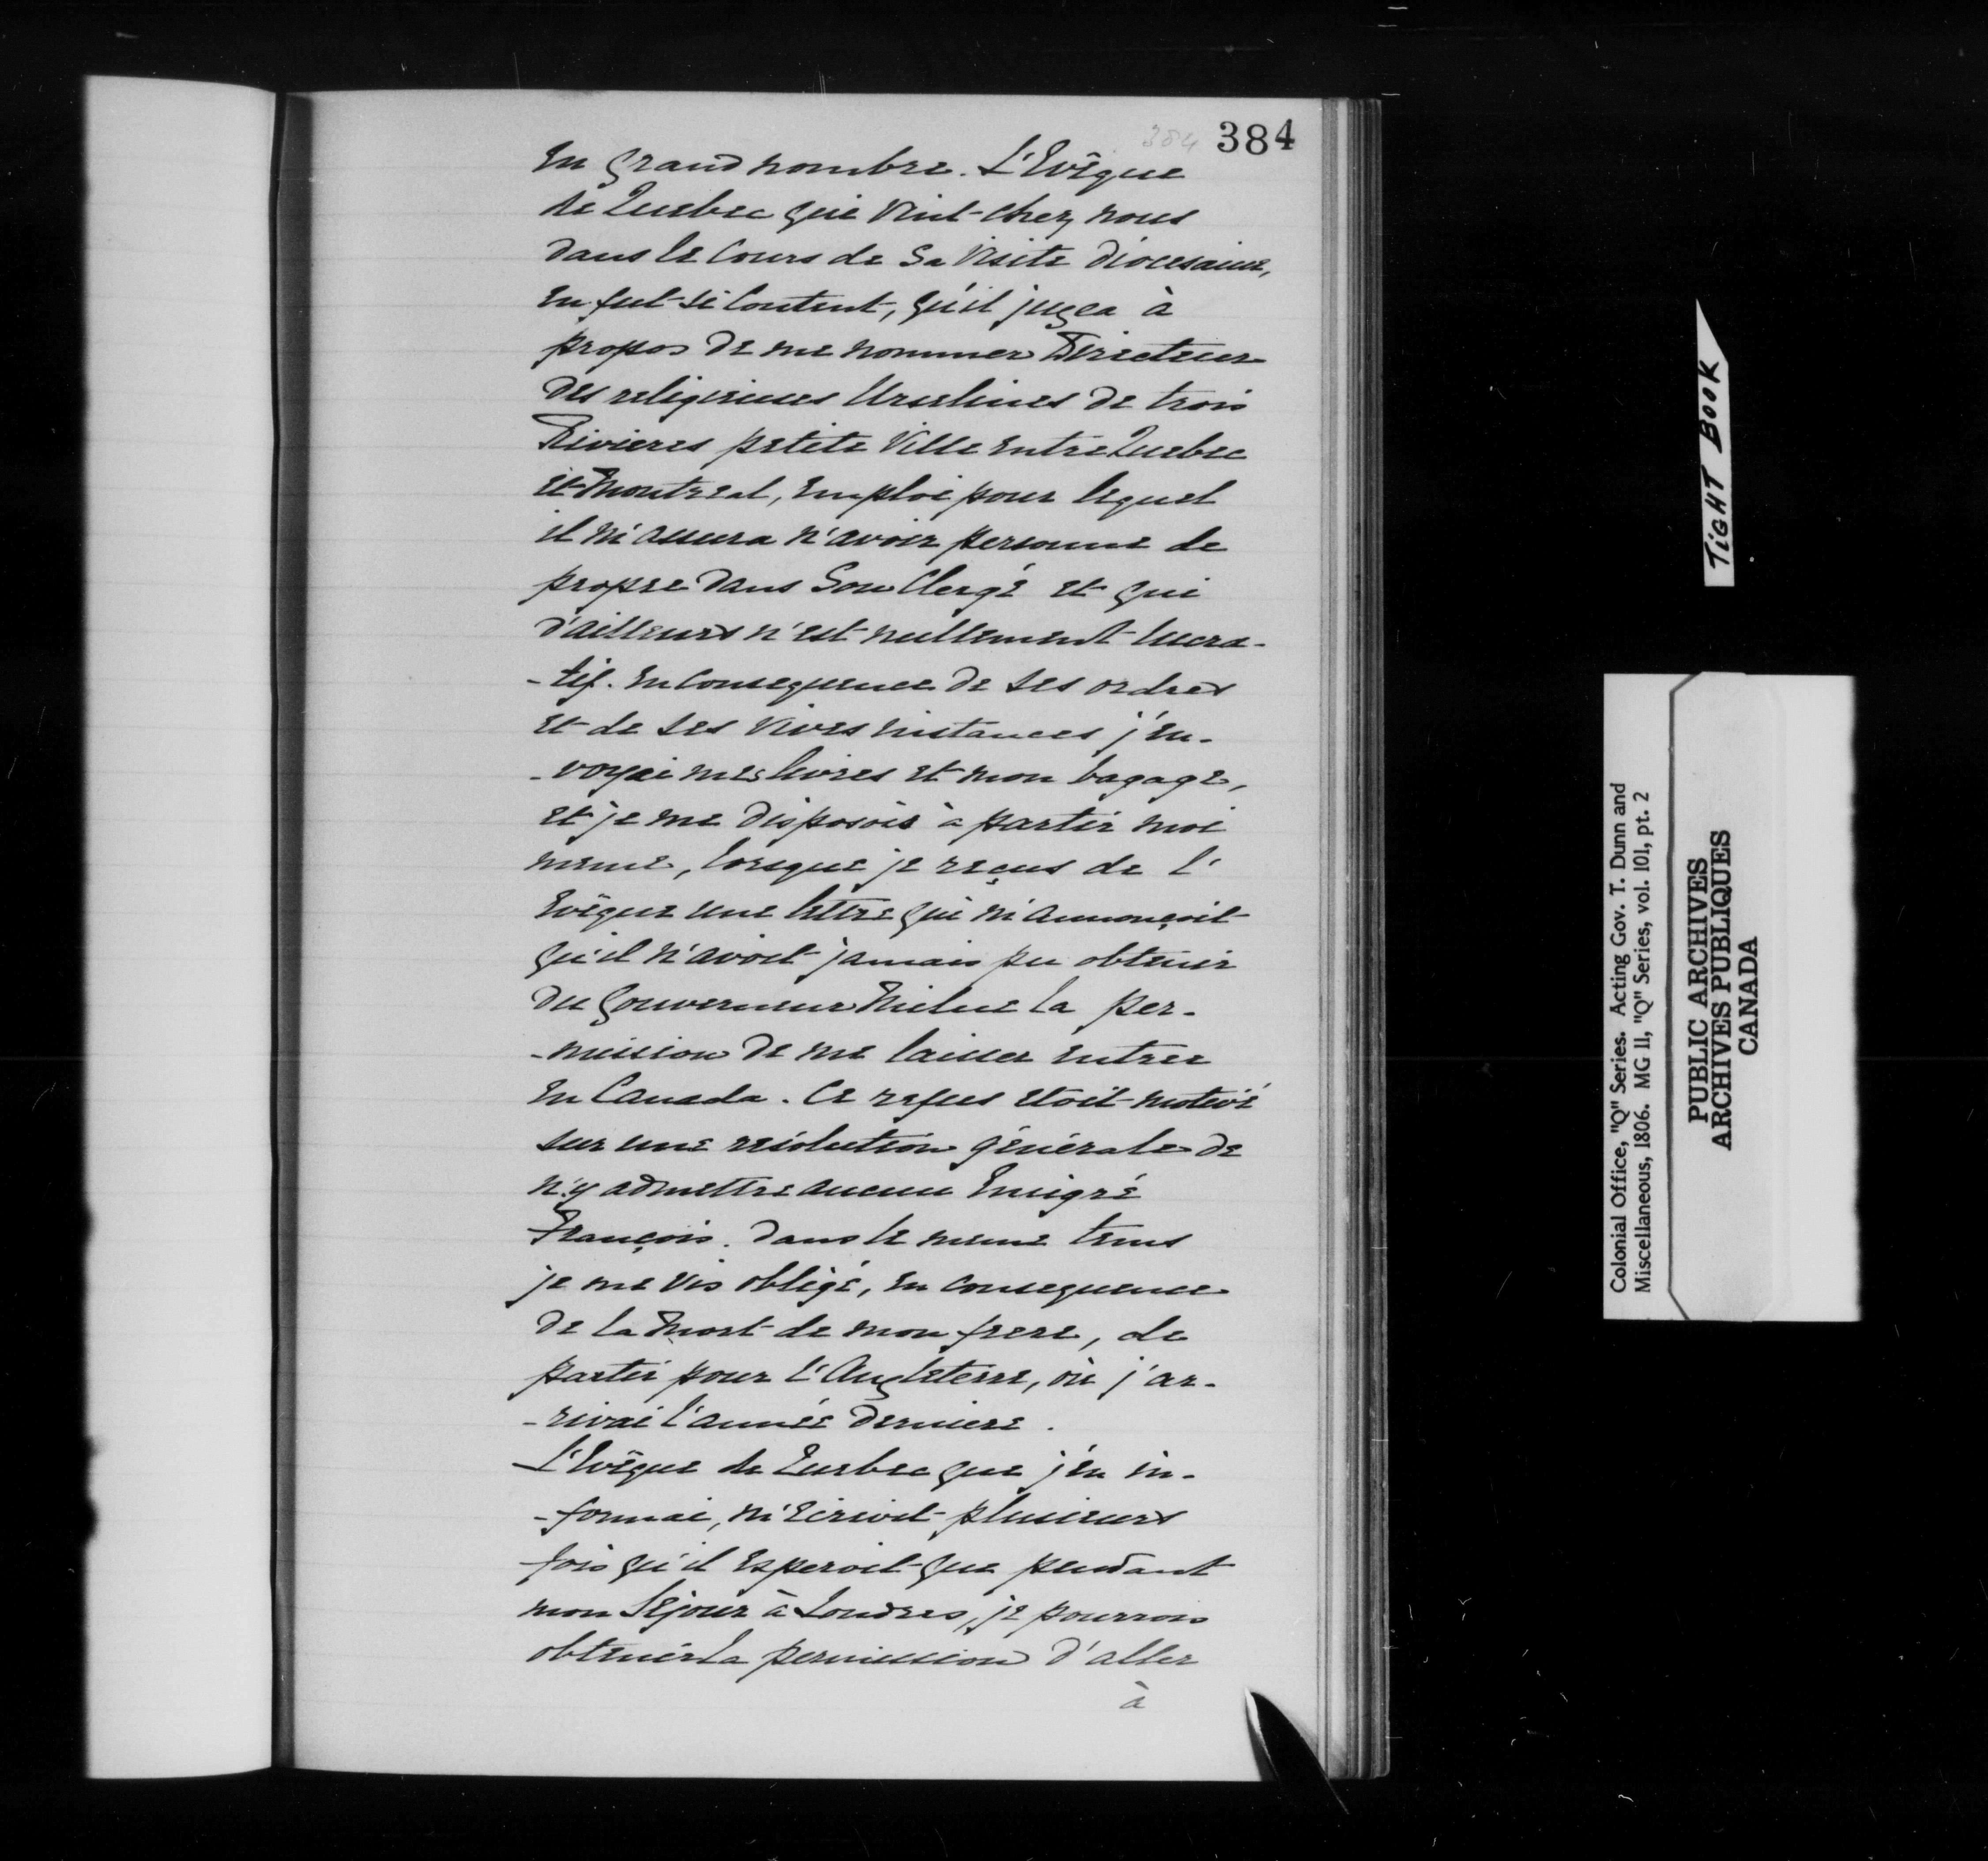 384 384
en grand nombre. L'Evêque
de Quebec qui vint chez nous
dans le cours de sa visite diocesaine,
en fut si content, qu'il jugea à
propos de me nommer Directeur
des religieuses Urselines de trois
Rivieres petite Ville entre Quebec
et Montreal, emploi pour lequel
il m'assura n'avoir personne de
propre dans Son Clergé et qui
d'ailleurs n'est nullement lucra-
-tif. En consequence de ses ordres
et de ses vives instances j'en-
-voyai mes livres et mon bagage,
et je me disposois à partir moi
meme, lorsque je reçus de l'
Evêque une lettre qui m'annonçoit
qu'il n'avoit jamais pu obtenir
du Gouverneur Milne la per-
-mission de me laisser entrer
en Canada. Ce refus etoit motivé
sur une résolution générale de
n'y admettre aucun Emigré
François. Dans le meme tems
je me vis obligé, en consequence
de la mort de mon frere, de
partir pour l'Angleterre, où j'ar-
-rivai l'année derniere.
L'Evêque de Quebec que j'en in-
-formai, m'écrivit plusieurs
fois qu'il esperoit que pendant
mon Séjour à Londres, je pourrois
obtenir la permission d'aller
à
TIGHT BOOK
Colonial Office, "Q" Series. Acting Gov. T. Dunn and
Miscellaneous, 1806. MG 11, "Q" Series, vol. 101, pt. 2
PUBLIC ARCHIVES
ARCHIVES PUBLIQUES
CANADA